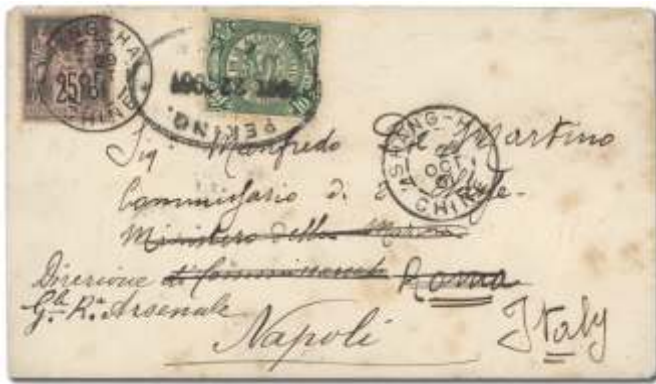 SHANG-HAI
CHINE
25
10
10
OCT 22
PEKING.
SHANG-HAI
OCT
CHINE
Sigr Manfredo Del Martino
Commissario di 2a Classe
Ministero della Marina
Direzione di Commissariato Roma
Gle Ro Arsenale
Napoli
Italy